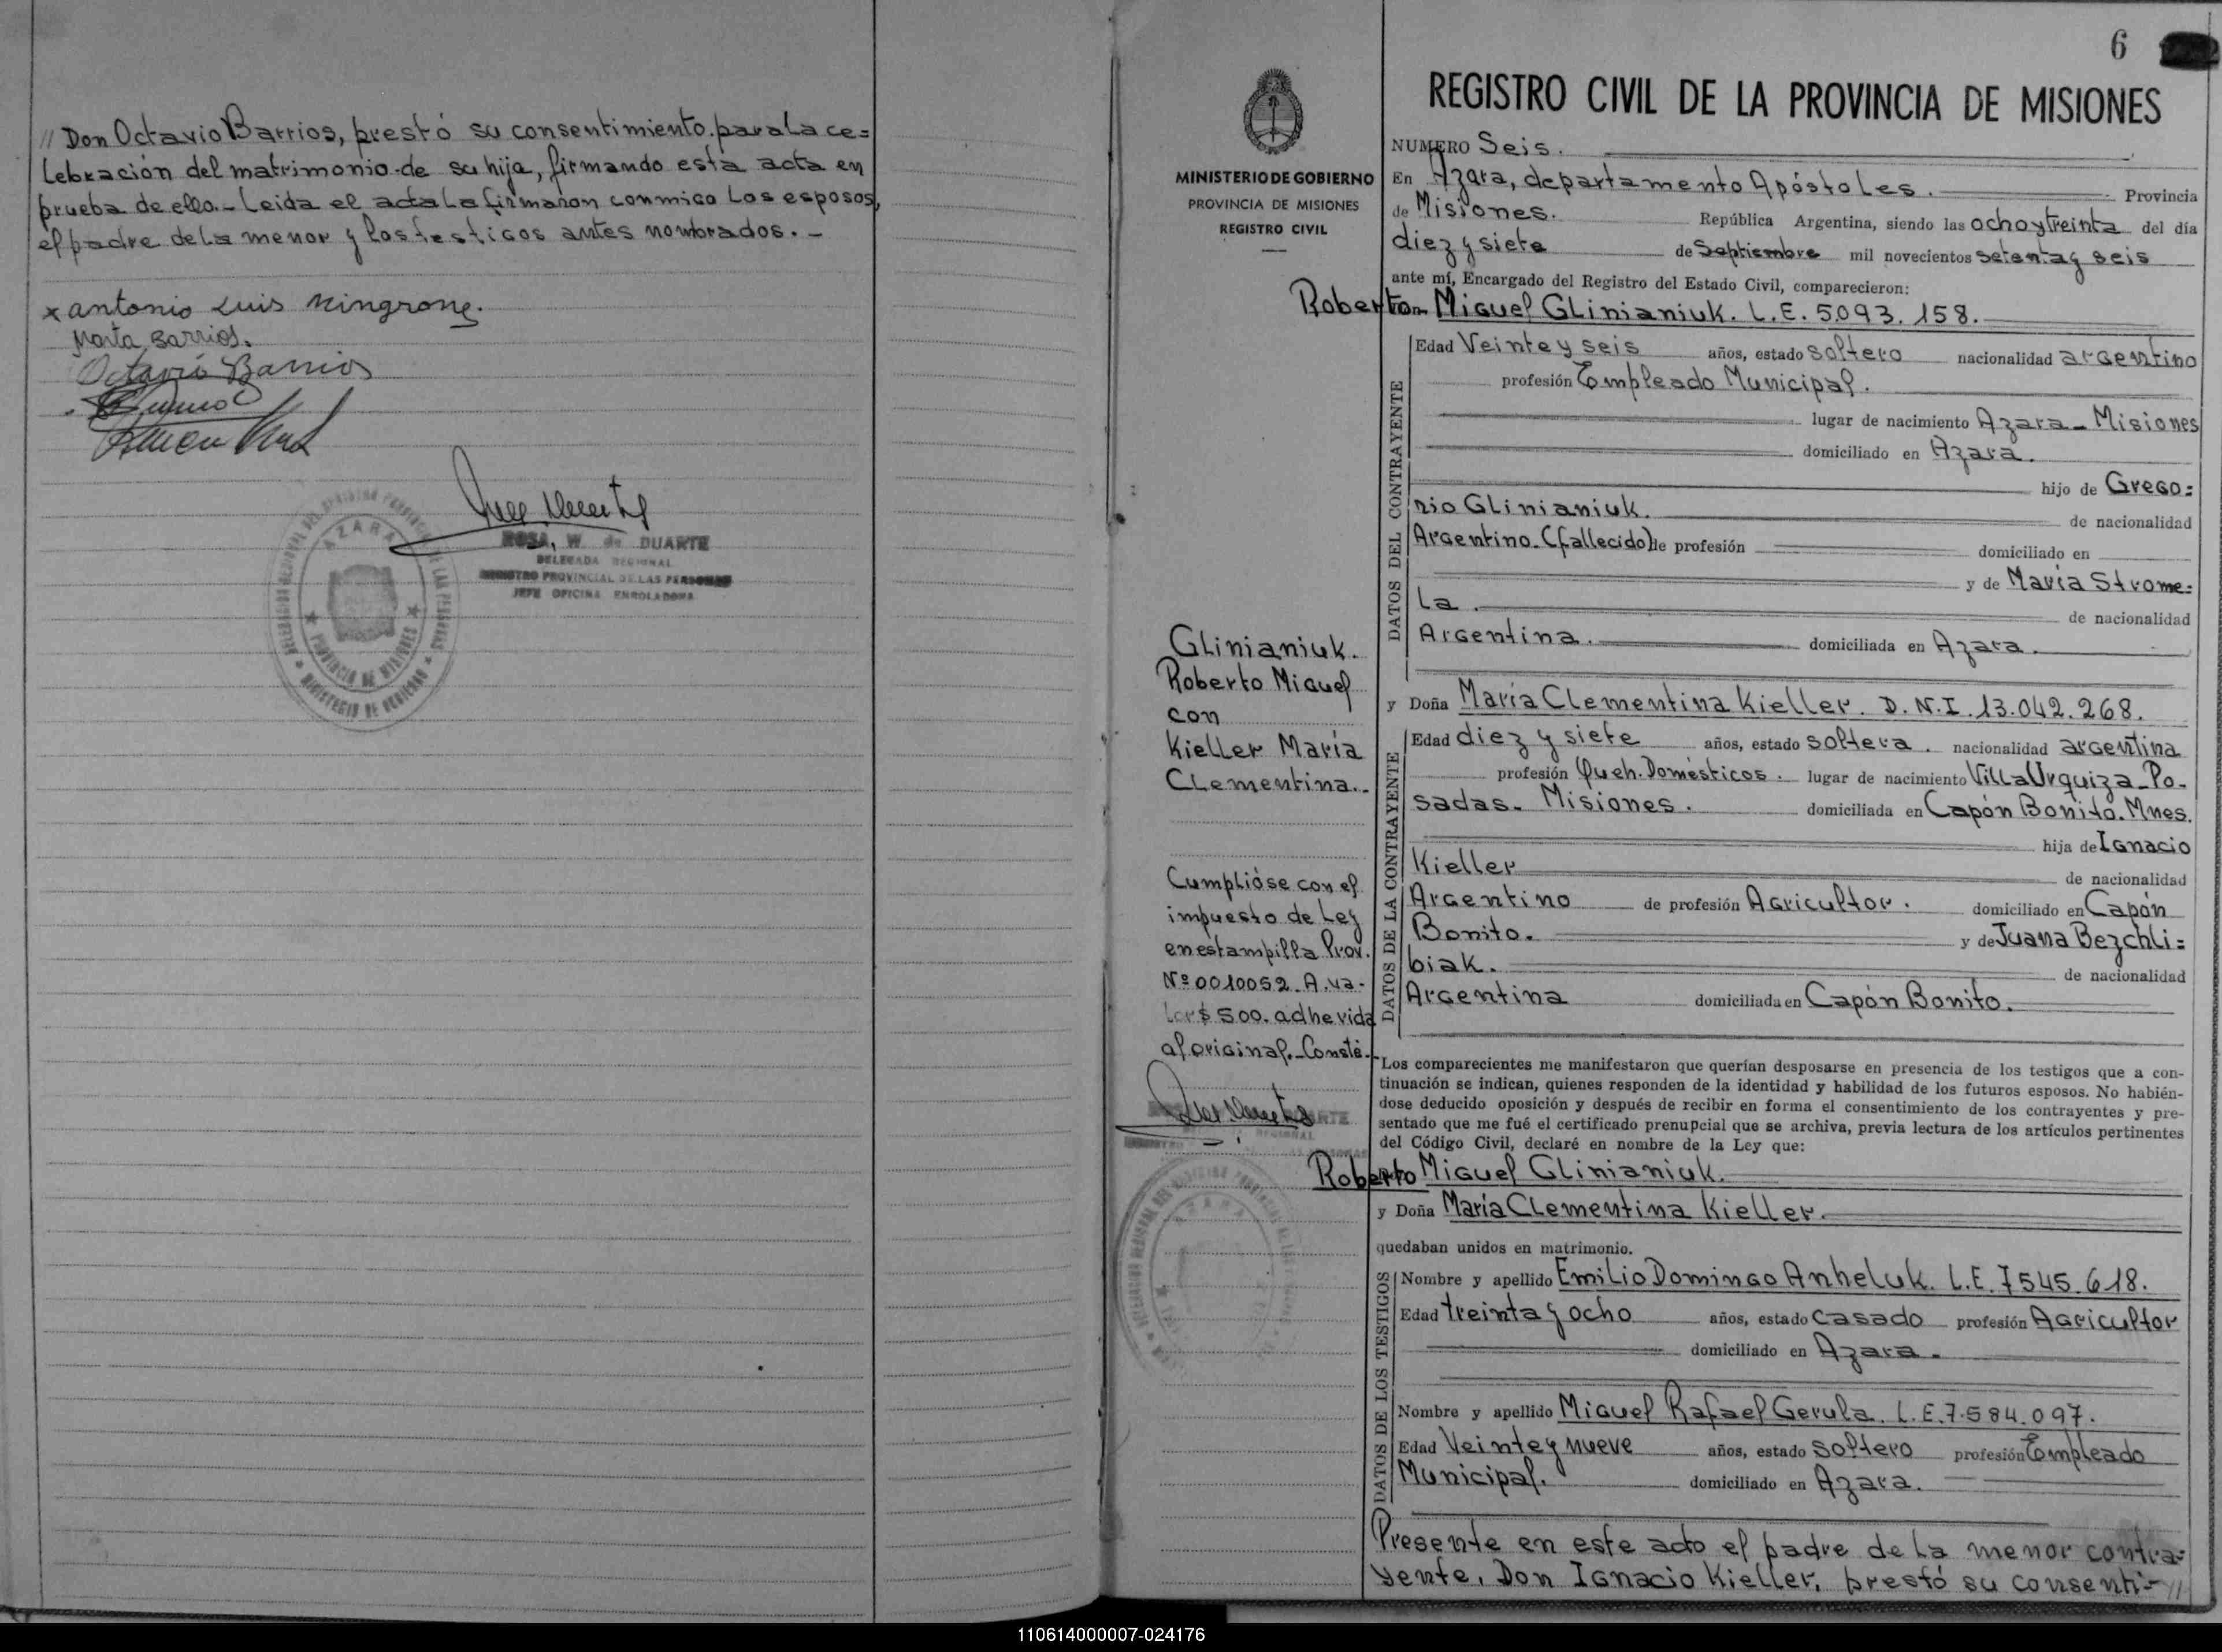 // Don Octavio Barrios, prestó su consentimiento para la ce=
lebración del matrimonio de su hija, firmando esta acta en
prueba de ello.- Leida el acta la firmaron conmigo los esposos,
el padre de la menor y los testigos antes nombrados.-
x antonio Luis Mingrone.
Marta Barrios.
Octavio Barrios
AZARA
PROVINCIA DE MISIONES
ROSA, W de DUARTE
DELEGADA REGIONAL
REGISTRO PROVINCIAL DE LAS PERSONAS
JEFE OFICINA ENROLADORA
6
MINISTERIO DE GOBIERNO
PROVINCIA DE MISIONES
REGISTRO CIVIL
Glinianiuk.
Roberto Miguel
con
Kieller María
Clementina.-
Cumplióse con el
impuesto de Ley
en estampilla Prov.
Nº 0010052. A. va-
lor $ 500. adherida
al original.- Conste.-
REGISTRO CIVIL DE LA PROVINCIA DE MISIONES
NUMERO Seis.
En Azara, departamento Apóstoles. Provincia
de Misiones. República Argentina, siendo las ocho y treinta del día
diez y siete de Septiembre mil novecientos setenta y seis
ante mí, Encargado del Registro del Estado Civil, comparecieron:
Roberto Miguel Glinianiuk. L.E. 5.093.158.
DATOS DEL CONTRAYENTE
Edad Veinte y seis años, estado soltero nacionalidad argentino
profesión Empleado Municipal.
lugar de nacimiento Azara - Misiones
domiciliado en Azara.
hijo de Grego=
rio Glinianiuk.
de nacionalidad
Argentino. (fallecido) de profesión domiciliado en
y de María Strome=
la.
de nacionalidad
Argentina. domiciliada en Azara.
y Doña María Clementina Kieller. D.N.I. 13.042.268.
DATOS DE LA CONTRAYENTE
Edad diez y siete años, estado soltera. nacionalidad argentina
profesión Queh. Domésticos. lugar de nacimiento Villa Urquiza - Po-
sadas. Misiones. domiciliada en Capón Bonito. Mnes.
hija de Ignacio
Kieller
de nacionalidad
Argentino de profesión Agricultor. domiciliado en Capón
Bonito. y de Juana Bezchli=
biak.
de nacionalidad
Argentina domiciliada en Capón Bonito.
Los comparecientes me manifestaron que querían desposarse en presencia de los testigos que a con-
tinuación se indican, quienes responden de la identidad y habilidad de los futuros esposos. No habién-
dose deducido oposición y después de recibir en forma el consentimiento de los contrayentes y pre-
sentado que me fué el certificado prenupcial que se archiva, previa lectura de los artículos pertinentes
del Código Civil, declaré en nombre de la Ley que:
Roberto Miguel Glinianiuk.
y Doña María Clementina Kieller.
quedaban unidos en matrimonio.
DATOS DE LOS TESTIGOS
Nombre y apellido Emilio Domingo Anheluk. L.E. 7.545.618.
Edad treinta y ocho años, estado casado profesión Agricultor
domiciliado en Azara.
Nombre y apellido Miguel Rafael Gerula. L.E. 7.584.097.
Edad Veinte y nueve años, estado soltero profesión Empleado
Municipal. domiciliado en Azara.
Presente en este acto el padre de la menor contra=
yente, Don Ignacio Kieller, prestó su consenti- //
110614000007-024176